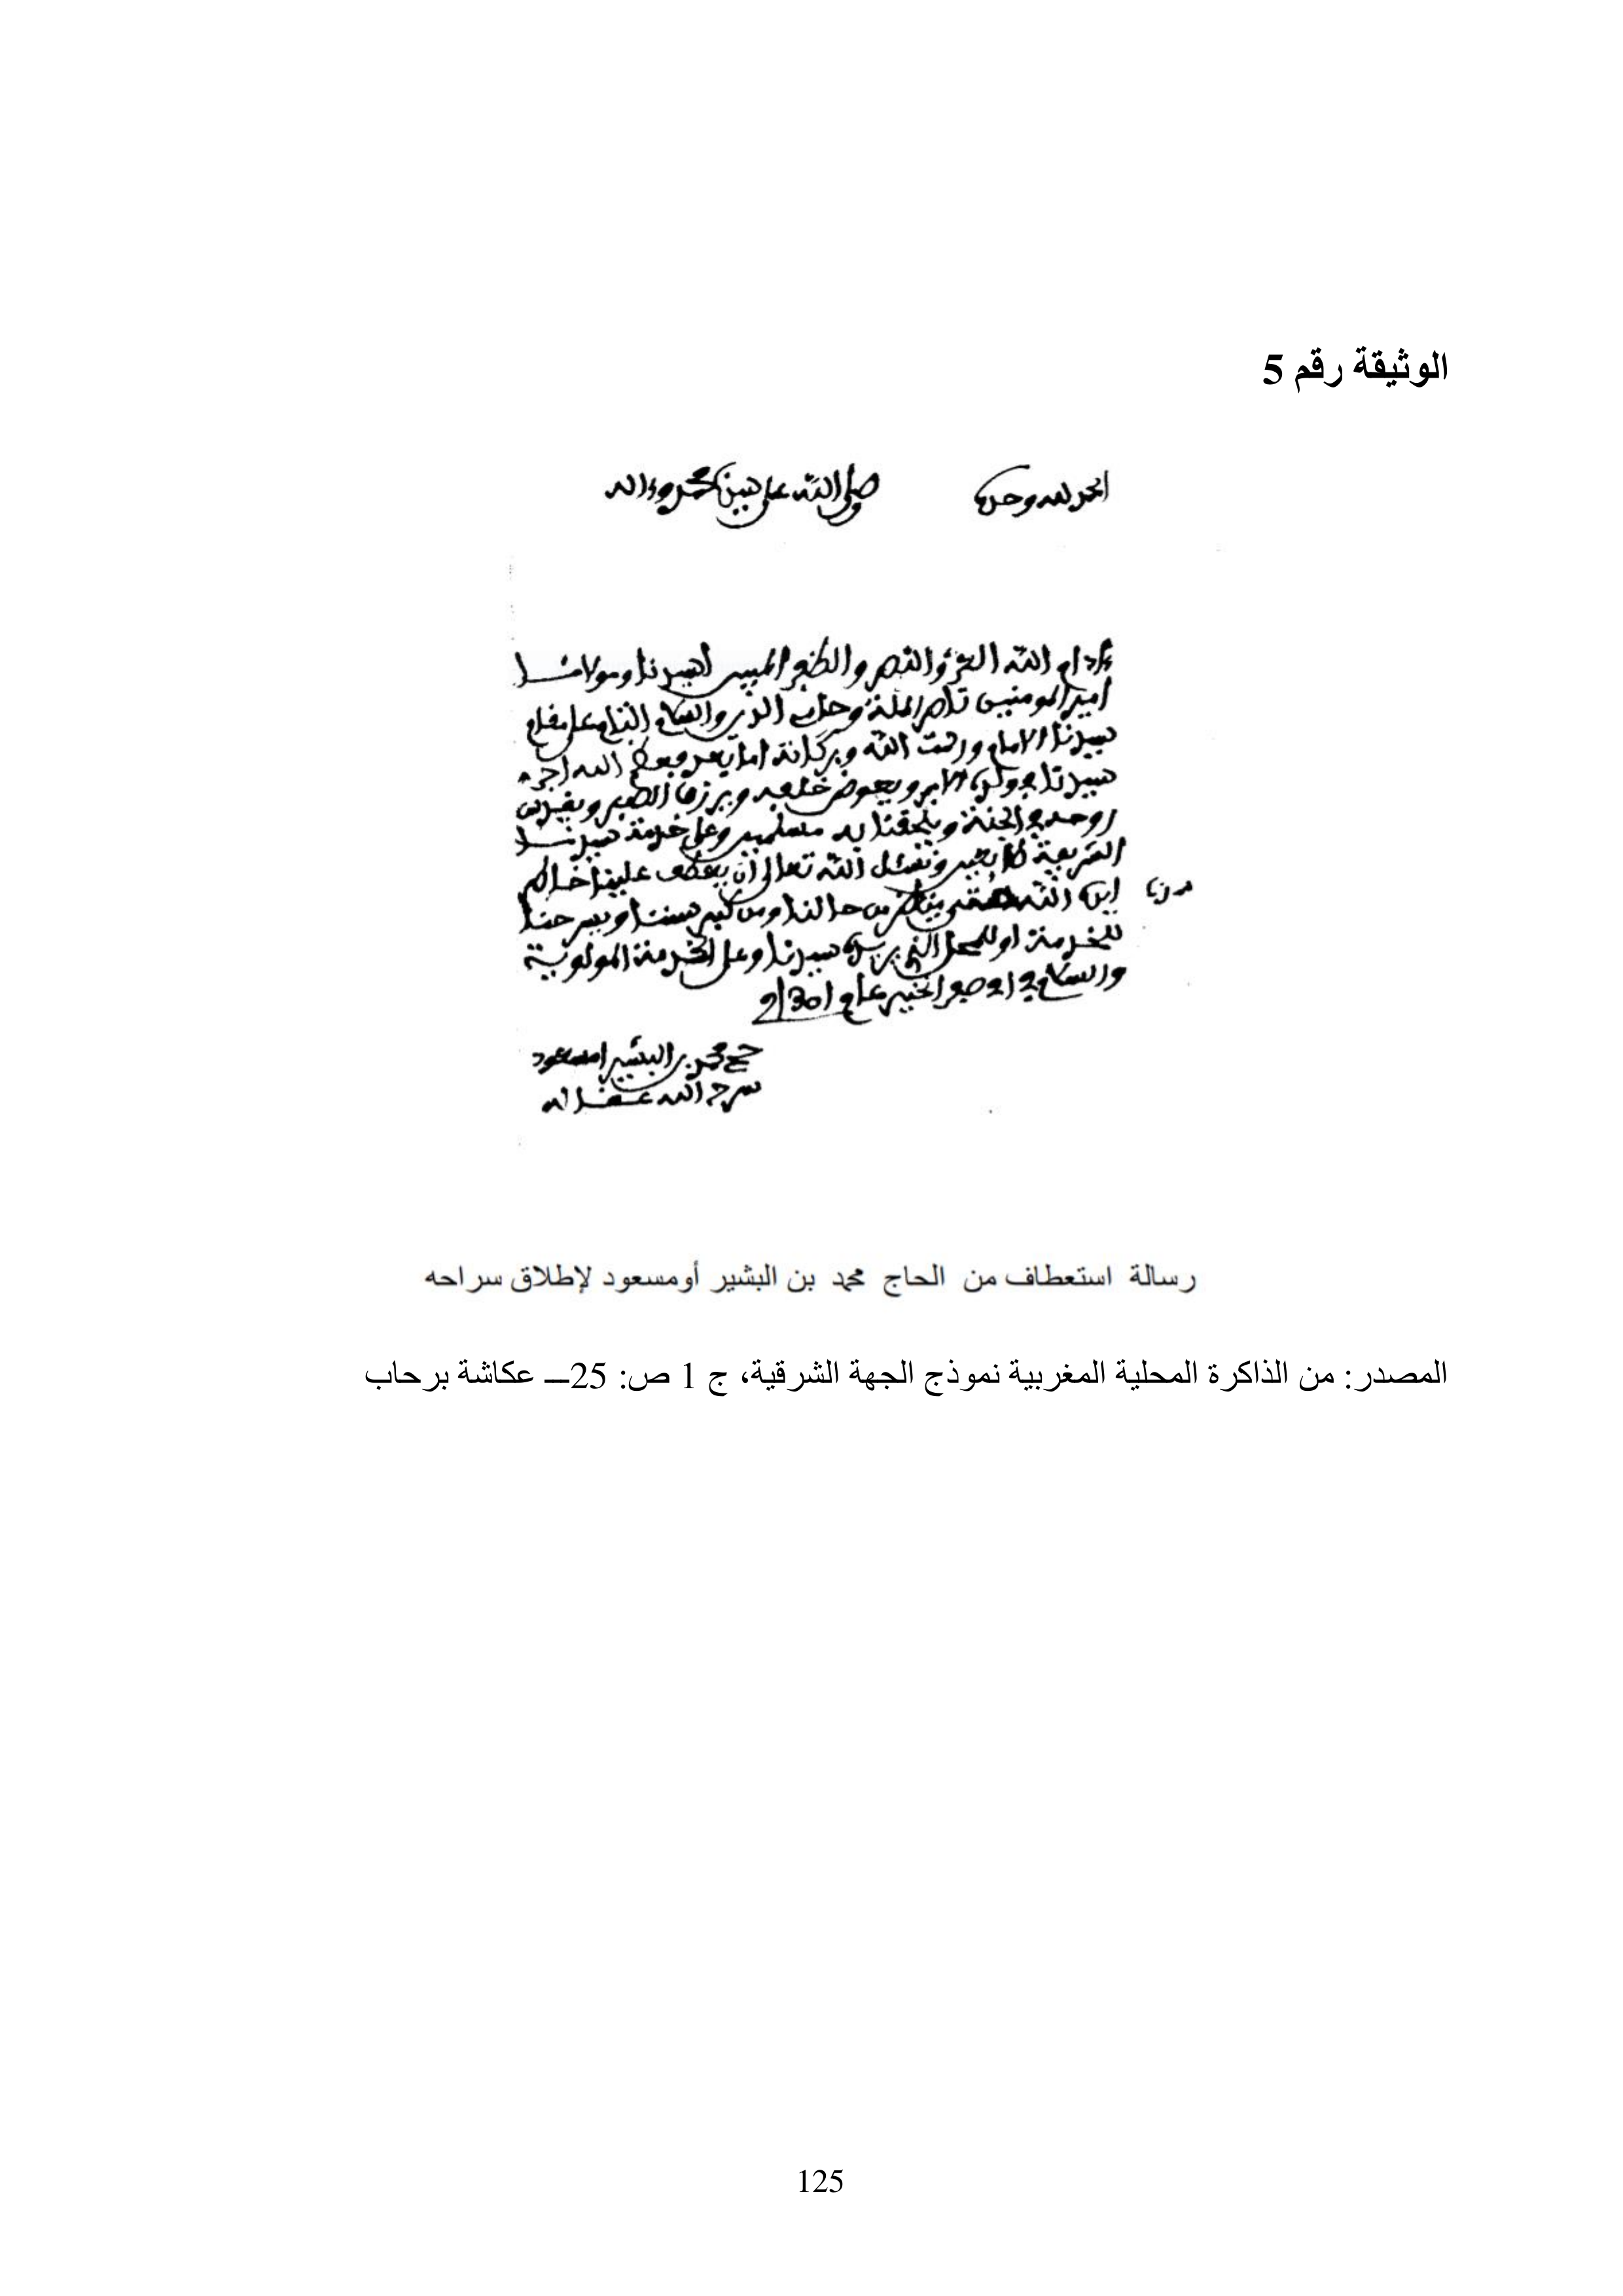 الوثيقة رقم 5
الحمد لله وحده وصلى الله على سيدنا محمد وءاله
ءادام الله العز والنصر والظفر المبين لسيدنا ومولانا
امير المومنين ناصر الملة والدين والسلام التام على مقام
سيدنا الامام ورحمت الله وبركاته اما بعد فيعظم الله اجر
سيدنا في الامير ويعوض خلفه ويرزقنا الصبر ويقدس
روحه في الجنة ويلحقنا به مسلمين وعلى خدمة سيدنا
الشريفة ونسئل الله تعالى أن يعطف علينا
ابن الله من حالنا ومن كبر سننا ويسرحنا
للخدمة او للمحل الذي يريده سيدنا وعلى الخدمة المولوية
والسلام في صفر الخير عام 1301
حج محمد بن البشير امسعود
سرحه الله
رسالة استعطاف من الحاج محمد بن البشير أومسعود لإطلاق سراحه
المصدر: من الذاكرة المحلية المغربية نموذج الجهة الشرقية، ج 1 ص: 25ــ عكاشة برحاب
125